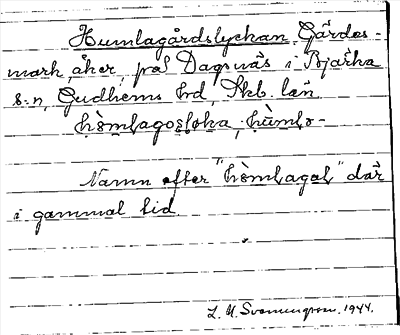 Humlagårdslyckan Gärdes-
mark åker, på Dagsnäs i Bjärka
s:n, Gudhems hd, Skb. län
hòmlagosloka, hùmlo-
Namn efter "hòmlagaL" där
i gammal tid
L. M. Svenungsson. 1944.